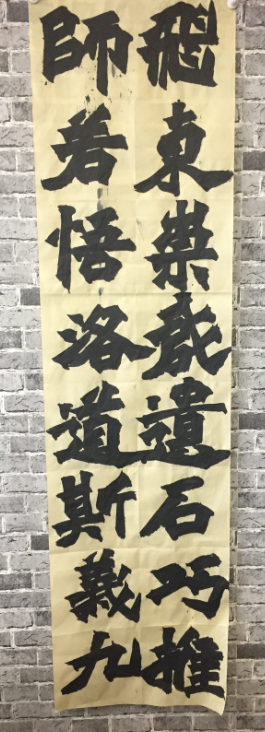 飛東遺石巧推
師若悟洛道斯義九